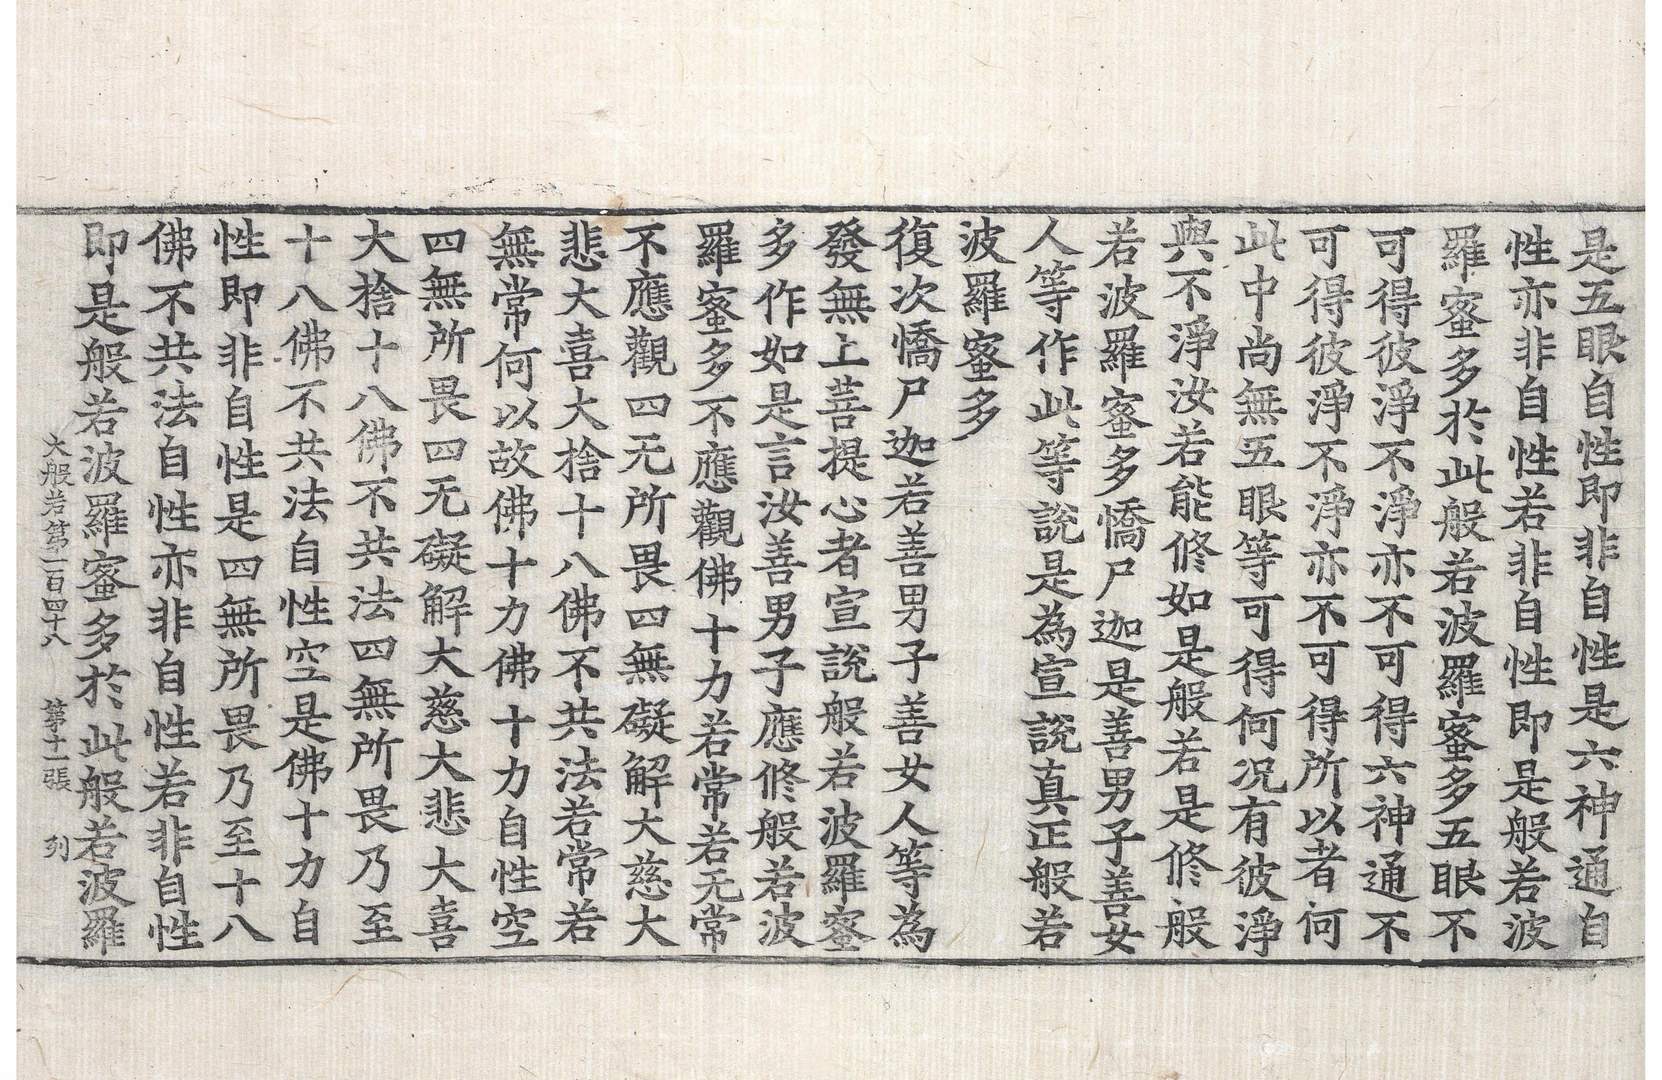 是五眼自性即非自性是六神通自
性亦非自性若非自性即是般若波
羅蜜多於此般若波羅蜜多五眼不
可得彼淨不淨亦不可得六神通不
可得彼淨不淨亦不可得所以者何
此中尚無五眼等可得何況有彼淨
與不淨汝若能修如是般若是修般
若波羅蜜多憍尸迦是善男子善女
人等作此等說是為宣說真正般若
波羅蜜多
復次憍尸迦若善男子善女人等為
發無上菩提心者宣說般若波羅蜜
多作如是言汝善男子應修般若波
羅蜜多不應觀佛十力若常若无常
不應觀四无所畏四無礙解大慈大
悲大喜大捨十八佛不共法若常若
無常何以故佛十力佛十力自性空
四無所畏四无礙解大慈大悲大喜
大捨十八佛不共法四無所畏乃至
十八佛不共法自性空是佛十力自
性即非自性是四無所畏乃至十八
佛不共法自性亦非自性若非自性
即是般若波羅蜜多於此般若波羅
大般若第一百四十八 第十一張 列